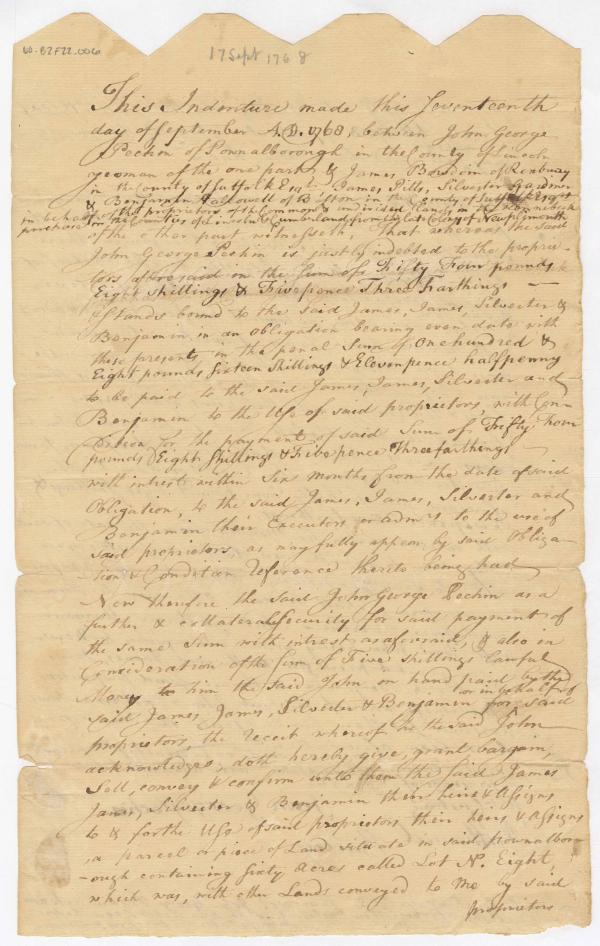 60-B2F22.006
17 Sept 1768
This Indenture made this Seventeenth
day of September A.D. 1768, between John George
Pechin of Pownalborough in the County of Lincoln
yeoman of the one part & James Bowdoin of Roxbury
in the County of Suffolk Esqr James Pitts, Silvester Gardiner
& Benjamin Hallowell of Boston, in the County of Suffolk Esqrs
in behalf of the proprietors of the Common & undivided Lands in the
purchase in the Counties of Lincoln & Cumberland from the late Colony of New Plymouth
of the other part witnesseth, That whereas the said
John George Pechin is justly indebted to the proprie-
tors aforesaid in the Sum of Fifty Four pounds
Eight Shillings & Fivepence Three Farthings
& Stands bound to the said James, James, Silvester &
Benjamin in an Obligation bearing even date with
these presents, in the penal Sum of One hundred &
Eight pounds Sixteen Shillings & Elevenpence halfpenny
to be paid to the said James, James, Silvester and
Benjamin to the Use of said proprietors, with Con-
dition for the payment of said Sum of Fifty Four
pounds Eight Shillings & Fivepence Threefarthings
with intrest within Six Months from the date of said
Obligation, to the said James, James, Silvester and
Benjamin their Executors or admrs to the use of
said proprietors, as may fully appear by said Obliga-
tion & Condition Reference thereto being had
Now therefore the said John George Pechin as a
further & collateral Security for said payment of
the same Sum with intrest as aforesaid, & also in
Consideration of the sum of Five shillings lawful
Money to him the said John in hand paid by the
said James, James, Silvester & Benjamin for said or in behalf of
proprietors, the receit whereof he the said John
acknowledges, doth hereby give, grant bargain,
Sell, convey & confirm unto them the said James
James, Silvester & Benjamin their heirs & Assigns
to & for the Use of said proprietors their heirs & Assigns
a parcel or piece of Land situate in said pownalbor-
ough containing Sixty Acres called Lot No. Eight
which was, with other Lands conveyed to Me by said
proprietors